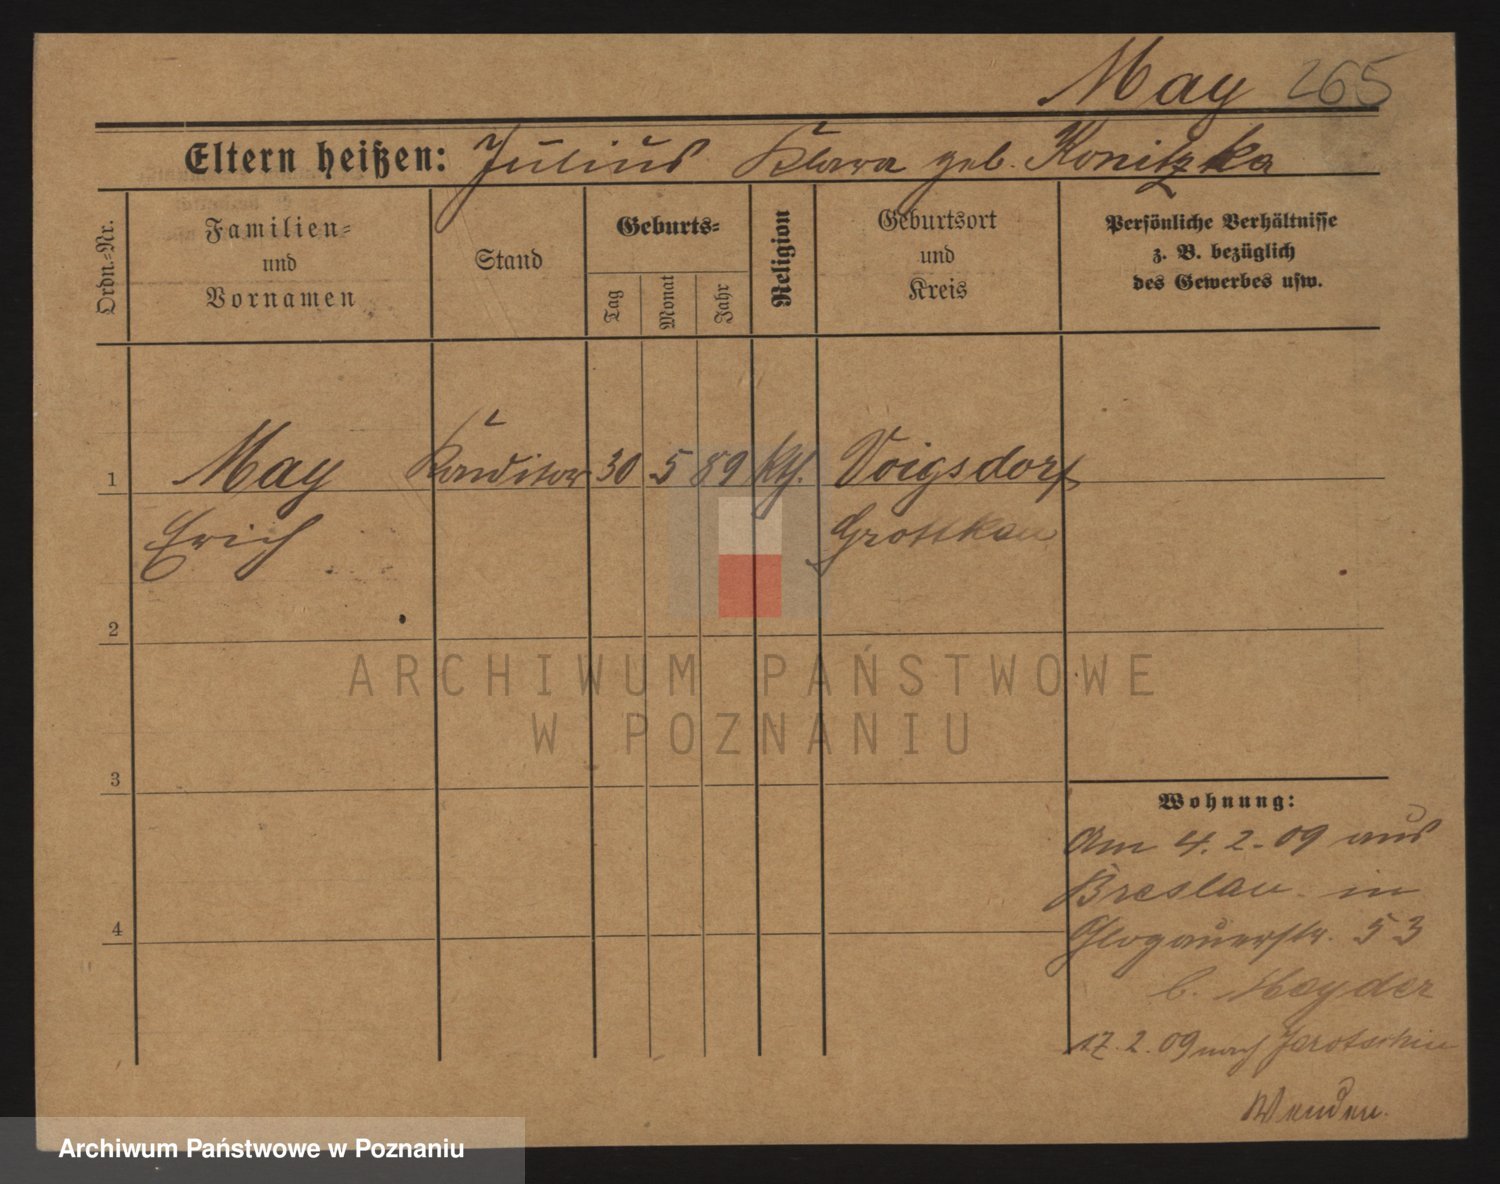 May 265
Eltern heißen: Julius Klara geb. Konitzka
Ordn.-Nr.
Familien-
und
Vornamen
Stand
Geburts-
Tag
Monat
Jahr
Religion
Geburtsort
und
Kreis
Persönliche Verhältnisse
z. B. bezüglich
des Gewerbes usw.
1 May Konditor 30 5 89 kth. Voigsdorf
Erich Grottkau
2
3
4
Wohnung:
Am 4. 2. 09 aus
Breslau in
Glogauerstr. 53
b. Heyder
17. 2. 09 nach Jarotschin
Wenden.
ARCHIWUM PAŃSTWOWE
W POZNANIU
Archiwum Państwowe w Poznaniu